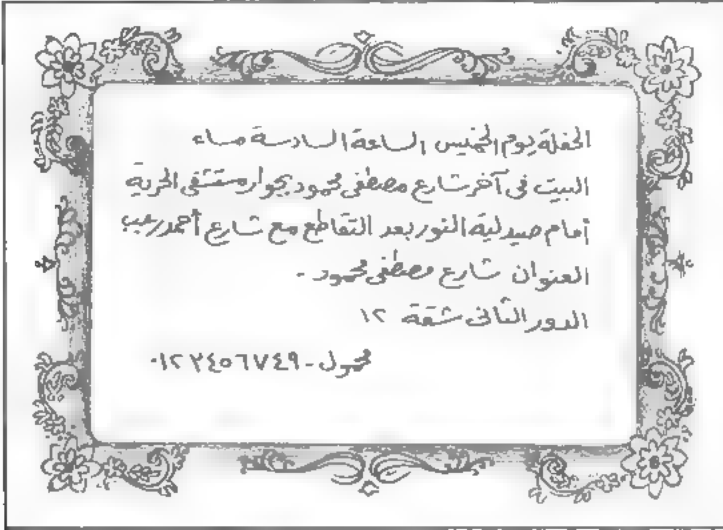 الحفلة يوم الخميس الساعة السادسة مساء
البيت فى آخر شارع مصطفى محمود بجوار مستشفى الحرية
أمام صيدلية النور بعد التقاطع مع شارع أحمد رجب
العنوان شارع مصطفى محمود .
الدور الثانى شقة ١٢
محمول - ٠١٢٢٤٥٦٧٤٩